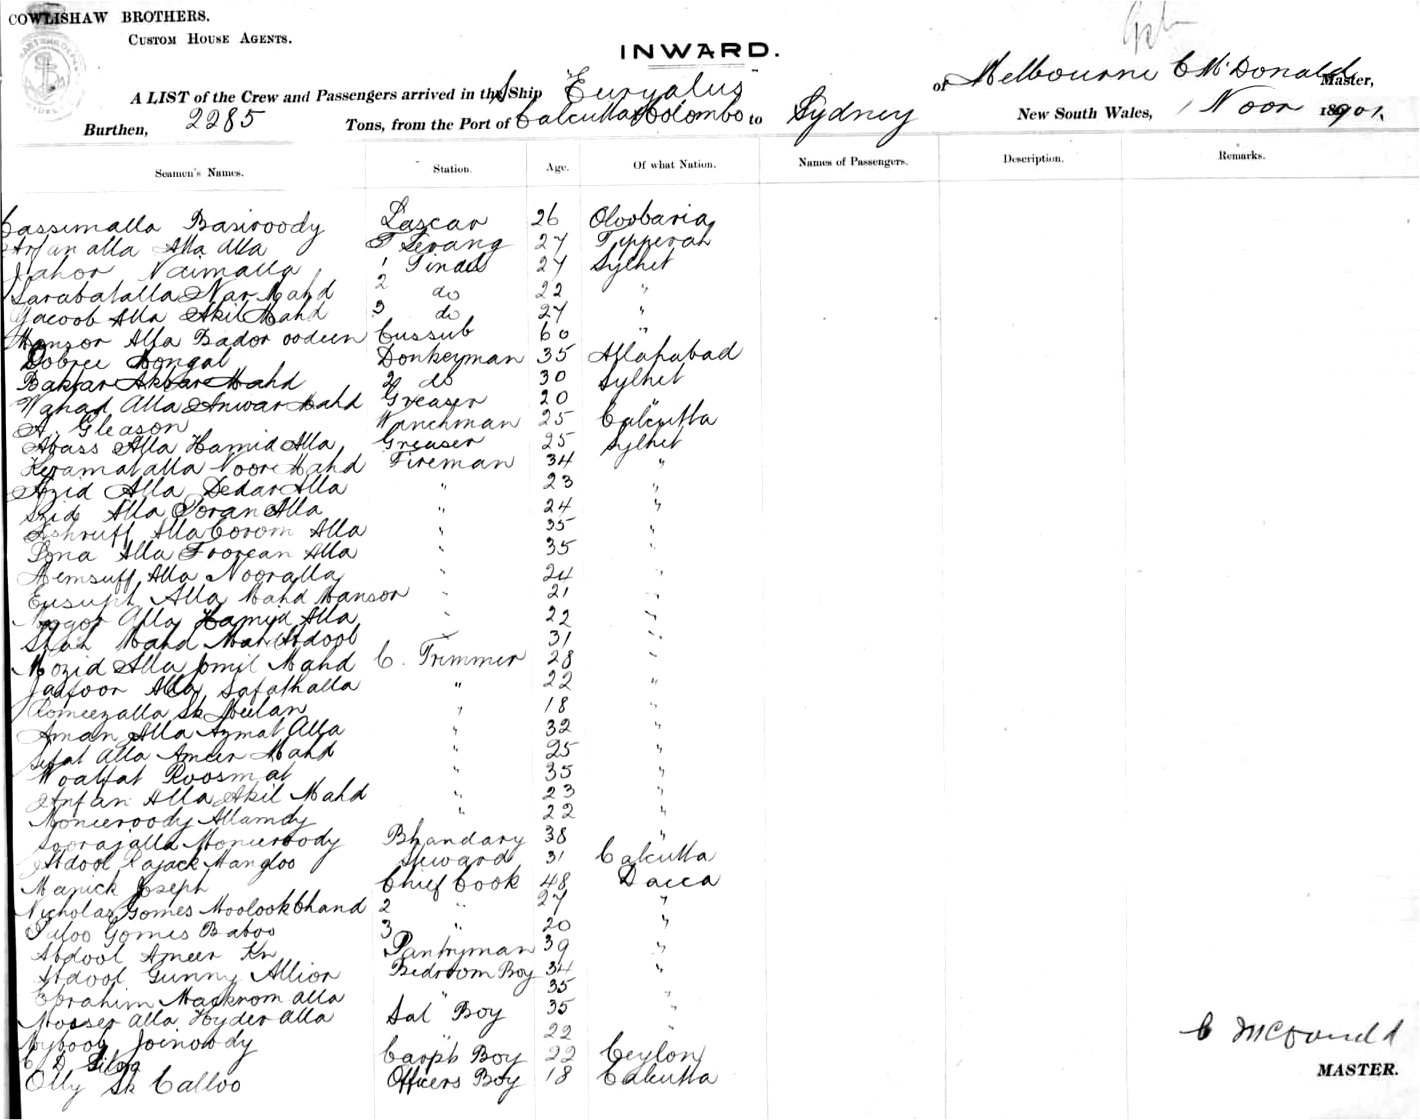 COWLISHAW BROTHERS.
CUSTOM HOUSE AGENTS.
INWARD.
A LIST of the Crew and Passengers arrived in the Ship "Euryalus" of Melbourne C McDonald Master,
Burthen, 2285 Tons, from the Port of Calcutta Colombo to Sydney New South Wales, 1 Nov 1901.
Seamen's Names. Station. Age. Of what Nation. Names of Passengers. Description. Remarks.
Cassimalla Basiroody Lascar 26 Oloobaria
Arfanalla Alla Alla Serang 27 Tipperah
Jahor Naimalla 1 Tindal 27 Sylhet
Sarabatalla Nar Mahd 2 do 22 "
Yacoob Alla Akil Mahd 3 do 27 "
Mansor Alla Bador oodeen Cussub 60 "
Dobree Mongal Donkeyman 35 Allahabad
Baktar Akbar Mahd 2 do 30 Sylhet
Wahad Alla Anwar Mahd Greaser 20 "
A. Gleason Winchman 25 Calcutta
Abass Alla Hamid Alla Greaser 25 Sylhet
Keramatalla Noor Mahd Fireman 34 "
Azid Alla Dedar Alla " 23 "
Alla Toran Alla " 24 "
Ashruff Alla Corom Alla " 35 "
Alla Alla " 35 "
Memsuff Alla Nooralla " 24 "
Eusuph Alla Mahd Mansor " 21 "
Alla Hamid Alla " 22 "
Shah Mahd Mah Abdool " 31 "
Mozid Alla Jomil Mahd C. Trimmer 28 "
Jaffoor Alla Safathalla " 22 "
Romeezalla Sk Meelan " 18 "
Aman Alla Azmat Alla " 32 "
Sefat Alla Ameer Mahd " 25 "
Woalfat Roosmat " 35 "
Arfan Alla Akil Mahd " 23 "
Monieroody Allamdy " 22 "
Soorajalla Monieroody Bhandary 38 "
Abdool Rajack Mangloo Steward 31 Calcutta
Manick Joseph Chief Cook 48 Dacca
Nicholas Gomes Moolookchand 2 " 27 "
Gomes Baboo 3 " 20 "
Abdool Ameer Kn Pantryman 39 "
Abdool Gunny Allior Bedroom Boy 34 "
Ebrahim Mackrom alla " 35 "
Mosser Alla Hyder Alla Sal Boy 35 "
Joinoody " 22 "
C D Silva Capt's Boy 22 Ceylon
Olly Sk Calloo Officers Boy 18 Calcutta
C McDonald
MASTER.